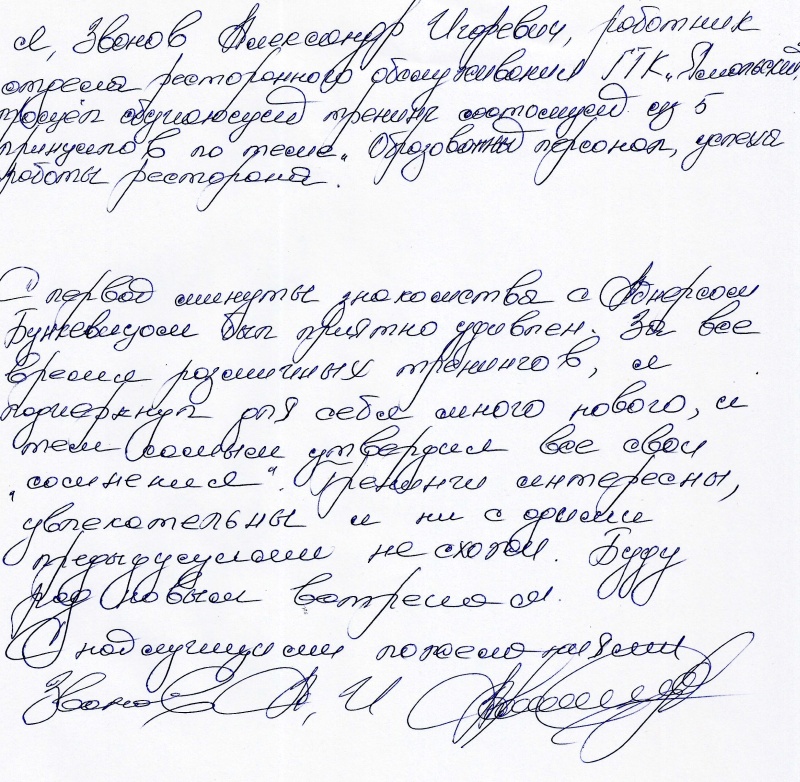 Я, Званов Александр Игоревич, работник
отдела ресторанного обслуживания ГТК „Ямольский"
прошёл обучающий тренинг состоящий из 5
принципов по теме „Образован­ный персонал, успеха
работы ресторана.
С первой минуты знакомства с
Бункевичом был приятно удивлен. За все
время различных тренингов, я
подчеркнул для себя много нового, и
тем самым утвердил все свои
„сомнения". Тренинги интересны,
увлекательны и ни с одними
предыдущими не схожи. Буду
рад новым встречам.
С наилучшими пожеланиями
Званов А, И